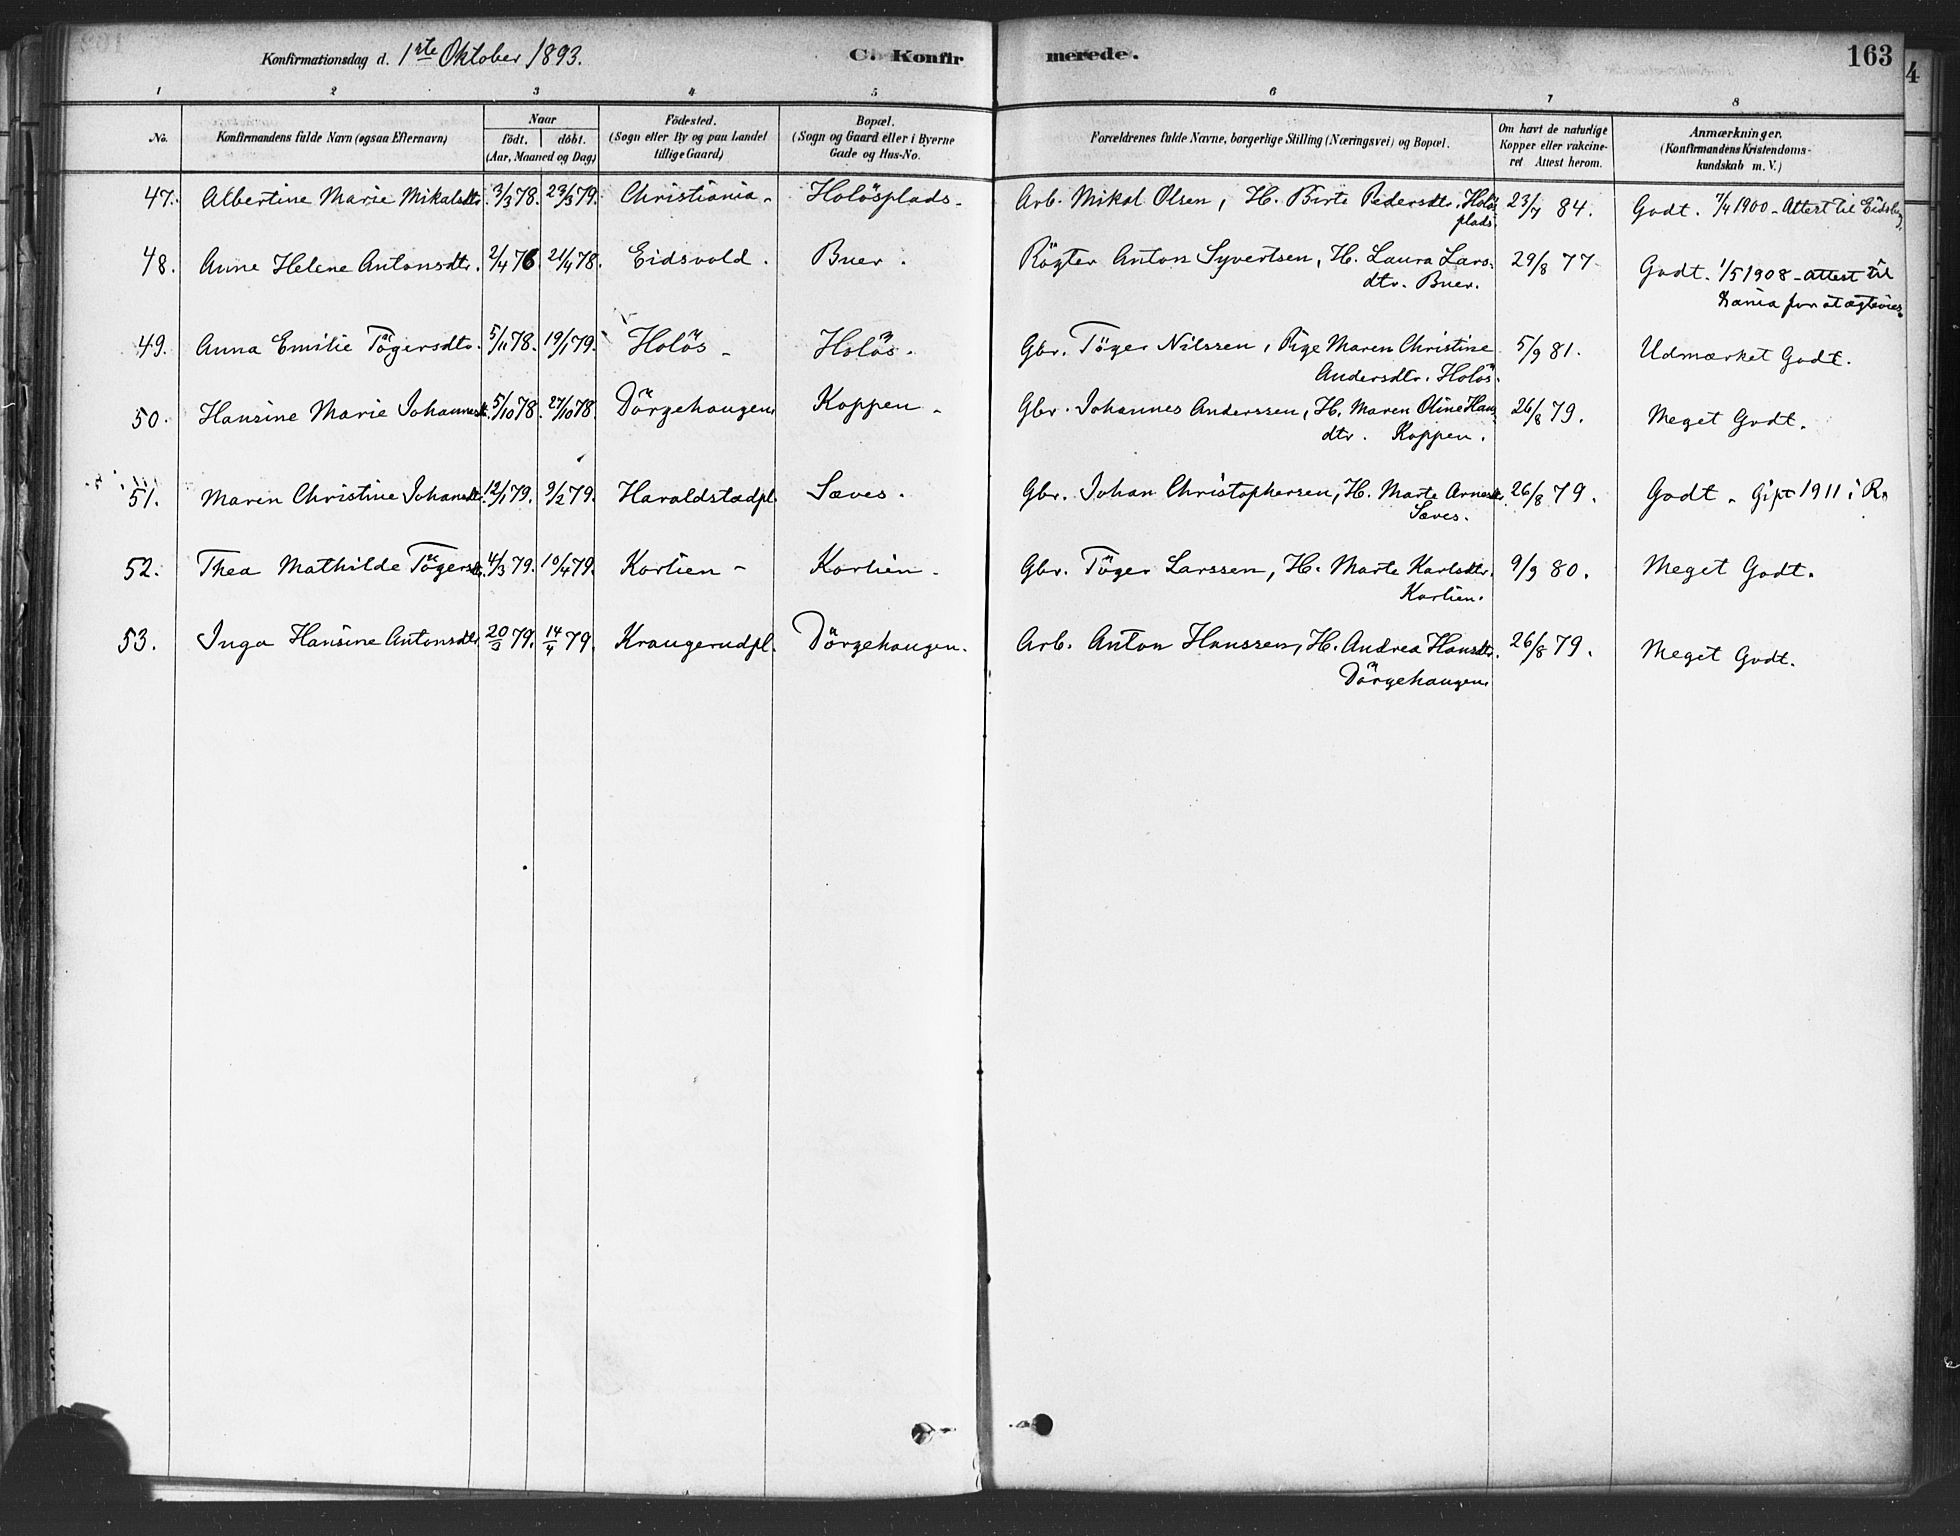 Konfirmationsdag d. 1ste Oktober 1893. C. Konfirmerede. 163
4
1 2 3 4 5 6 7 8
No. Konfirmandens fulde Navn (ogsaa Efternavn) Naar födt. döbt. (Aar, Maaned og Dag) Födested. (Sogn eller By og paa Landet tillige Gaard) Bopæl. (Sogn og Gaard eller i Byerne Gade og Hus-No. Forældrenes fulde Navne, borgerlige Stilling (Næringsvei) og Bopæl. Om havt de naturlige Kopper eller vakcineret Attest herom. Anmærkninger. (Konfirmandens Kristendomskundskab m. V.)
47. Albertine Marie Mikalsdtr. 3/3 78. 23/3 79. Christiania - Holösplads. Arb. Mikal Olsen, H. Birte Pedersdtr. Holös 23/7 84. Godt. 7/4 1900 - Attest til
plads.
48. Anne Helene Antonsdtr. 2/4 78 21/4 78. Eidsvold. Buer. Rögter Anton Syvertsen, H. Laura Lars- 29/8 77 Godt. 1/5 1908 - attest til
dtr. Buer. Xania for at ægtevies
49. Anna Emilie Tögersdtr. 5/11 78. 19/1 79. Holös - Holös. Gbr. Töger Nilssen, Pige Maren Christine 5/9 81. Udmærket Godt.
Andersdtr. Holös.
50. Hansine Marie Johannesdtr. 5/10 78. 27/10 78. Dörgehaugen Koppen - Gbr. Johannes Anderssen, H. Maren Oline Hans- 26/8 79. Meget Godt.
dtr. Koppen.
51. Maren Christine Johansdtr. 12/1 79. 9/2 79. Haraldstadpl. Sæves. Gbr. Johan Christophersen, H. Marte Arnesdtr. 26/8 79. Godt - Gift 1911 i
Sæves.
52. Thea Mathilde Tögersdtr. 4/3 79. 10/4 79. Korlien - Korlien - Gbr. Töger Larssen, H. Marte Karlsdtr. 9/9 80. Meget Godt.
Korlien.
53. Inga Hansine Antonsdtr. 20/2 79. 14/4 79. Kraugerudpl. Dörgehaugen. Arb. Anton Hanssen, H. Andrea Hansdtr. 26/8 79. Meget Godt.
Dörgehaugen.